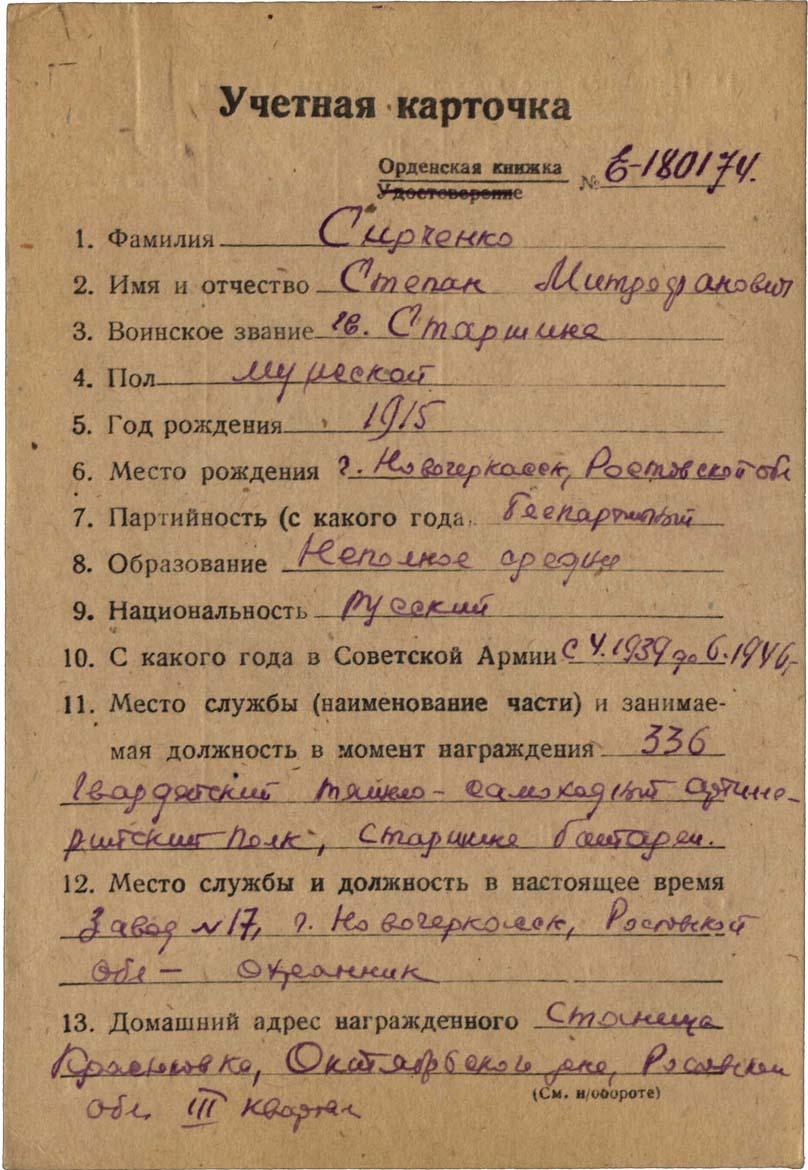 Учетная карточка
Орденская книжка
Удостоверение № Е-180174.
1. Фамилия Сирченко
2. Имя и отчество Степан Митрофанович
3. Воинское звание гв. Старшина
4. Пол мужской
5. Год рождения 1915
6. Место рождения г. Новочеркасск, Ростовской обл
7. Партийность (с какого года. беспартийный
8. Образование Неполное средне
9. Национальность Русский
10. С какого года в Советской Армии с 4.1939 до 6.1946.
11. Место службы (наименование части) и занимае-
мая должность в момент награждения 336
Гвардейский тяжело-самоходный артилле-
рийский полк, старшина батареи.
12. Место службы и должность в настоящее время
Завод №17, г. Новочеркасск, Ростовской
обл - охранник
13. Домашний адрес награжденного станица
Октябрьского Ростовской
(См. н/обороте)
обл. III квартал